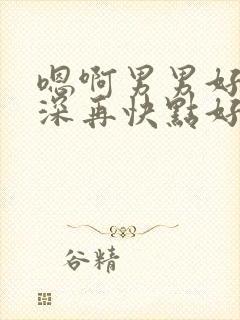 嗯啊男男好
深再快點好
谷精